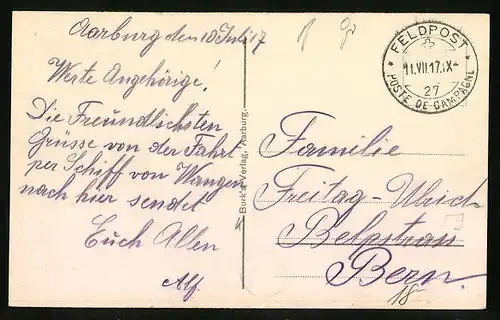 Aarburg den 10 Juli 17
Werte Angehörige!
Die Freundlichsten
Grüsse von der Fahrt
per Schiff von Wangen
nach hier sendet
Euch Allen
Alf.
Burk's Verlag, Aarburg.
FELDPOST
11.VII.17.IX-
27
POSTE DE CAMPAGNE
Familie
Freitag-Ulrich
Belpstrasse
Bern.
18
59